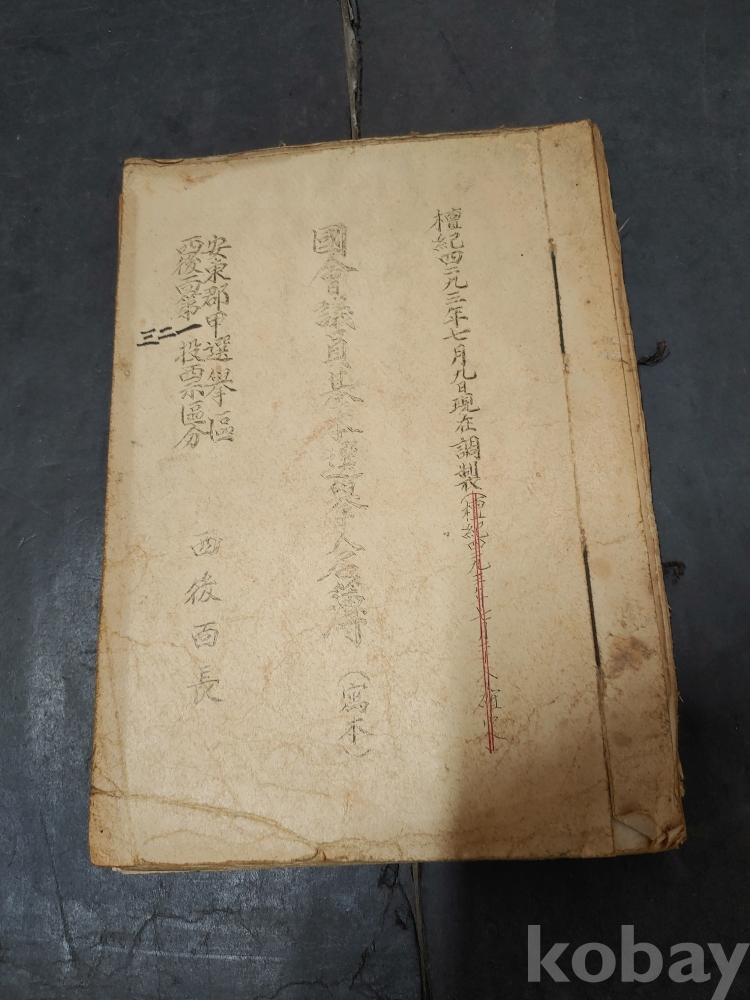 檀紀四二九三年七月九日現在調製(檀紀四
國會議員基本選擧人名簿(寫本)
安東郡甲選擧區
西後面第一二三投票區分
西後面長
kobay